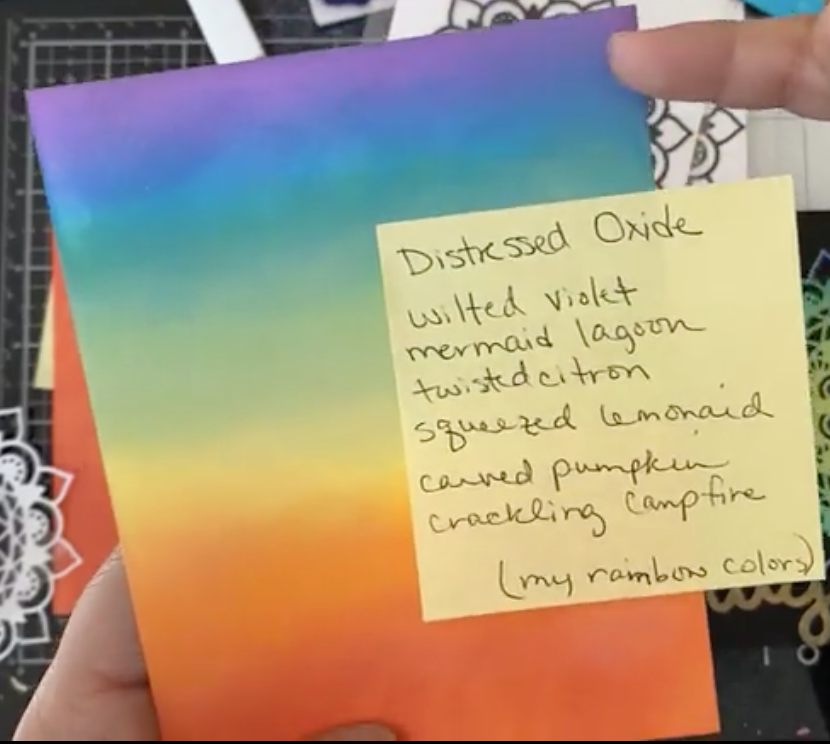 Distressed Oxide
wilted violet
mermaid lagoon
twisted citron
squeezed lemonaid
carved pumpkin
crackling campfire
(my rainbow colors)